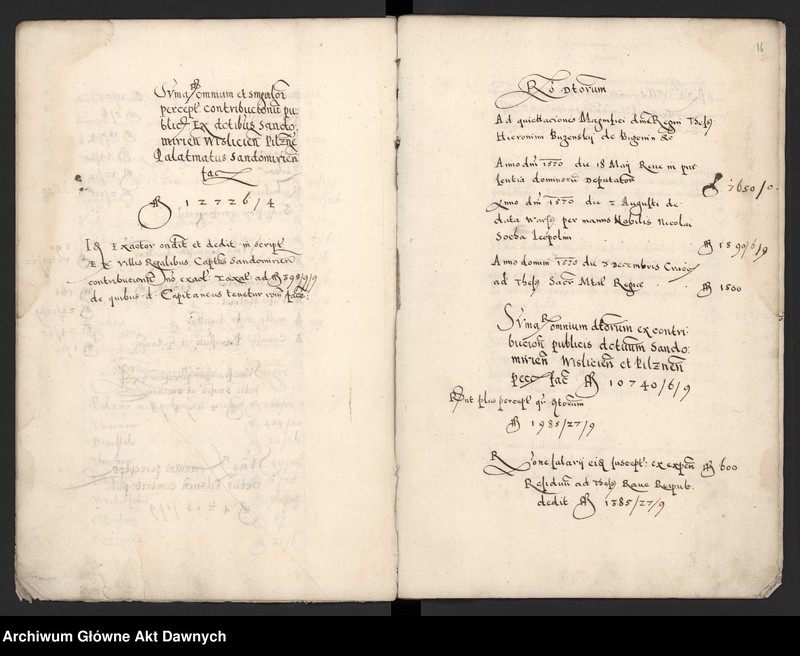 Suma omnium et singulor
percept contributionu pu
blic Ex dctibus Sando:
mirien Wislicien Pilzne
Palatinatus Sandomirien
fac
ff 12726/4
Exactor ondit et dedit in script
Ex Villis Regalibus Capttus Sandomirien
contribucionum exact taxat ad ff 398/9/9
de quibus d. Capitaneus tenetur facere:
16
Ro Dtorum
Ad quiettaciones Magnifici dmi Regni Thesr
Hieronimi Buzenskij de Bigonin
Anno dni 1570 die 18 Maij Raue in pre
sentia dominorum Deputatorum
ff 7650/0
Anno dni 1570 die 2 Augusti de
data Wars per manus Nobilis Nicolai
Socha Leopolmi
ff 1590/6/9
Anno domini 1570 die 3 Decembris
ad Thesr Sacre Mtas Regie
ff 1500
Suma omnium dtorum ex contri:
bucion publicis dctuum Sando:
mirien Wislicien et Pilznen
fac ff 10740/6/9
plus percept q
ff 1985/27/9
Rone salarij eid suscept: ex expen ff 600
Residuu ad Thesr Raue Reipub.
dedit ff 1385/27/9
Archiwum Główne Akt Dawnych